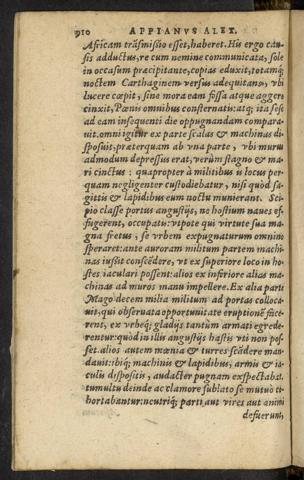 910 APPIANVS ALEX.
Africam trāsmissio esset, haberet. His ergo cau-
sis adductus, re cum nemine communicata, sole
in occasum præcipitante, copias eduxit, totamq́;
noctem Carthaginem versus adequitans, vbi
lucere cœpit, sine mora eam fossa atque aggere
cinxit, Pœnis omnibus consternatis: atq; ita sese
ad eam insequenti die oppugnandam compara-
uit. omni igitur ex parte scalas & machinas di-
sposuit, præterquam ab vna parte, vbi murus
admodum depressus erat, verùm stagno & ma-
ri cinctus: quapropter à militibus is locus per-
quam negligenter custodiebatur, nisi quòd sa-
gittis & lapidibus eum noctu munierant. Sci-
pio classe portus angustijs, ne hostium naues ef-
fugerent, occupatis: vtpote qui virtute sua ma-
gna fretus, se vrbem expugnaturum omnino
speraret: ante auroram militum partem machi-
nas iussit conscēdere, vt ex superiore loco in ho-
stes iaculari possent: alios ex inferiore alias ma-
chinas ad muros manu impellere. Ex alia parti
Mago decem milia militum ad portas colloca-
uit, qui obseruata opportunitate eruptionē face-
rent, ex vrbeq́; gladijs tantùm armati egrede-
rentur: quòd in illis angustijs hastis vti non pos-
set. alios autem mœnia & turres scādere man-
dauit: ibiq́; machinis & lapidibus, armis & ia-
culis dispositis, audacter pugnam exspectabat.
tumultu deinde ac clamore sublato se mutuò co-
hortabantur: neutriq́; parti aut vires aut animi
defuerunt,